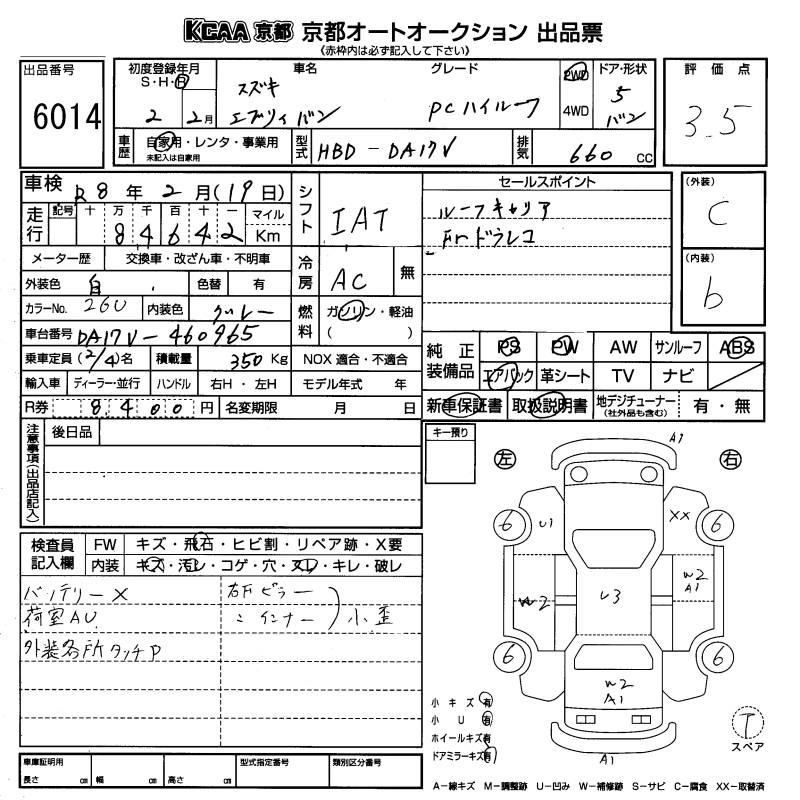 KCAA 京都 京都オートオークション 出品票
(赤枠内は必ず記入して下さい)
出品番号
6014
初度登録年月
S・H・R
2 2月
車名
スズキ
エブリィバン
グレード
PCハイルーフ
2WD
4WD
ドア・形状
5
バン
評価点
3.5
車歴
自家用・レンタ・事業用
未記入は自家用
型式
HBD-DA17V
排気
660 cc
車検 R8年2月(19日)
走行
記号 十 万 千 百 十 一 マイル
8 4 6 4 2 Km
メーター歴 交換車・改ざん車・不明車
外装色 白 色替 有
カラーNo. 26U 内装色 グレー
車台番号 DA17V-460965
乗車定員 (2/4)名 積載量 350 Kg
輸入車 ディーラー・並行 ハンドル 右H・左H
R券 8,400円 名変期限 月 日
シフト
IAT
冷房
AC 無
燃料
ガソリン・軽油
( )
NOX 適合・不適合
モデル年式 年
セールスポイント
ルーフキャリア
Frドラレコ
(外装)
C
(内装)
b
純正装備品
PS PW AW サンルーフ ABS
エアバック 革シート TV ナビ
新車保証書 取扱説明書 地デジチューナー (社外品も含む) 有・無
注意事項(出品店記入)
後日品
キー預り
検査員記入欄
FW キズ・飛石・ヒビ割・リペア跡・X要
内装 キズ・汚レ・コゲ・穴・ヌレ・キレ・破レ
バッテリーX
荷室AU
外装各所タッチP
右Fピラー
〃インナー
小歪
左 右
A1
6 U1 XX 6
W2 U3 W2
A1
6 6
W2
A1
A1
小キズ有
小U有
ホイールキズ有
ドアミラーキズ有
T
スペア
車庫証明用
長さ cm 幅 cm 高さ cm
型式指定番号
類別区分番号
A-線キズ M-調整跡 U-凹み W-補修跡 S-サビ C-腐食 XX-取替済